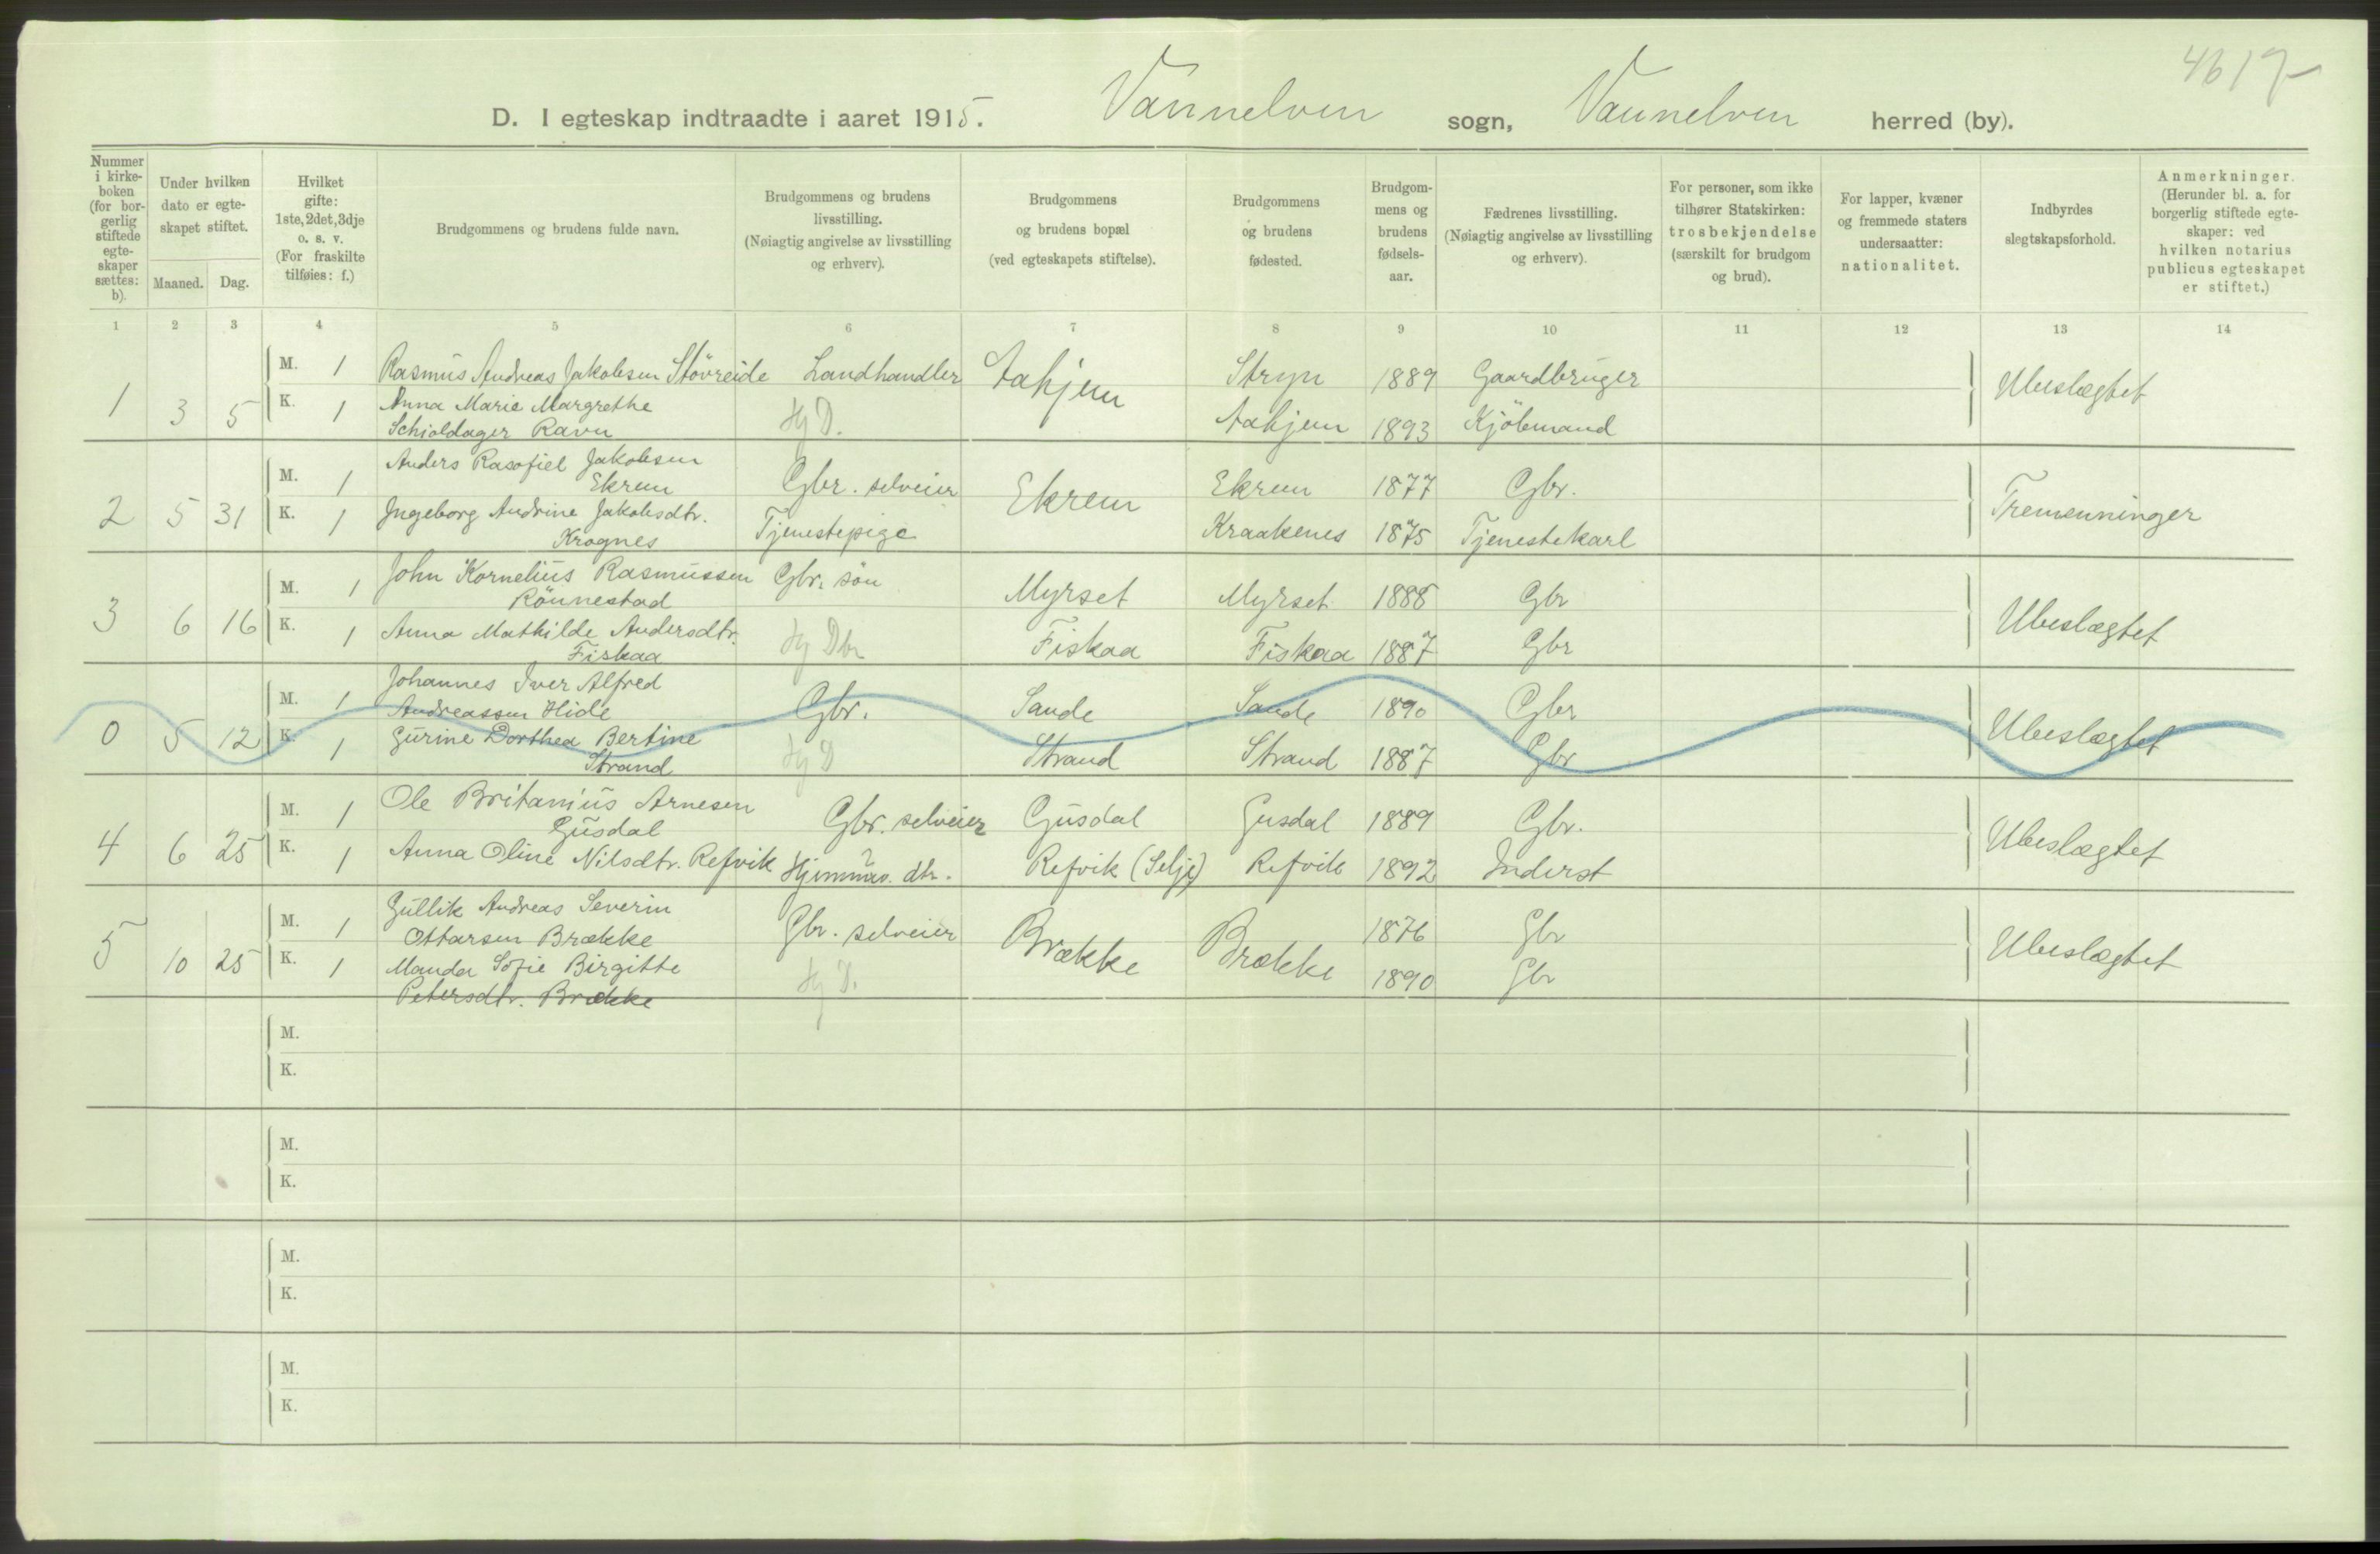 4617
D. I egteskap indtraadte i aaret 1915. Vannelven sogn, Vannelven herred (by).
Nummer i kirke-boken (for bor-gerlig stiftede egte-skaper sættes: b).
Under hvilken dato er egte-skapet stiftet.
Maaned. Dag.
Hvilket gifte: 1ste, 2det, 3dje o. s. v. (For fraskilte tilføies: f.)
Brudgommens og brudens fulde navn.
Brudgommens og brudens livsstilling. (Nøiagtig angivelse av livsstilling og erhverv).
Brudgommens og brudens bopæl (ved egteskapets stiftelse).
Brudgommens og brudens fødested.
Brudgom-mens og brudens fødsels-aar.
Fædrenes livsstilling. (Nøiagtig angivelse av livsstilling og erhverv).
For personer, som ikke tilhører Statskirken: trosbekjendelse (særskilt for brudgom og brud).
For lapper, kvæner og fremmede staters undersaatter: nationalitet.
Indbyrdes slegtskapsforhold.
Anmerkninger. (Herunder bl. a. for borgerlig stiftede egte-skaper: ved hvilken notarius publicus egteskapet er stiftet.)
1 2 3 4 5 6 7 8 9 10 11 12 13 14
M. 1 Rasmus Andreas Jakobsen Stövreide Landhandler Aahjem Stryn 1889 Gaardbruger Ubeslægtet
1 3 5 K. 1 Anna Marie Margrethe Hj D. Aahjem 1893 Kjöbmand
Schioldager Ravn
M. 1 Anders Rasofiel Jakobsen
Ekrem Gbr. selveier Ekrem Ekrem 1877 Gbr. Tremenninger
2 5 31 K. 1 Ingeborg Andrine Jakobsdtr. Tjenestepige Kraakenes 1875 Tjenestekarl
Krognes
M. 1 John Kornelius Rasmussen Gbr. sön
Rönnestad Myrset Myrset 1888 Gbr Ubeslægtet
3 6 16 K. 1 Anna Mathilde Andersdtr. Hj Dbr Fiskaa Fiskaa 1887 Gbr
Fiskaa
M. 1 Johannes Iver Alfred
Andreassen Hide Gbr. Sande Sande 1890 Gbr Ubeslægtet
0 5 12 K. 1 Gurine Dorthea Bertine Hj D Strand Strand 1887 Gbr
Strand
M. 1 Ole Britanius Arnesen
Gusdal Gbr. selveier Gusdal Gusdal 1889 Gbr. Ubeslægtet
4 6 25 K. 1 Anna Oline Nilsdtr. Refvik dtr. Refvik (Selje) Refvik 1892 Inderst
M. 1 Gullik Andreas Severin
Ottarsen Brække Gbr. selveier Brække Brække 1876 Gbr Ubeslægtet
5 10 25 K. 1 Manda Sofie Birgitte Hj D. 1890 Gbr
Petersdtr. Brække
M.
K.
M.
K.
M.
K.
M.
K.